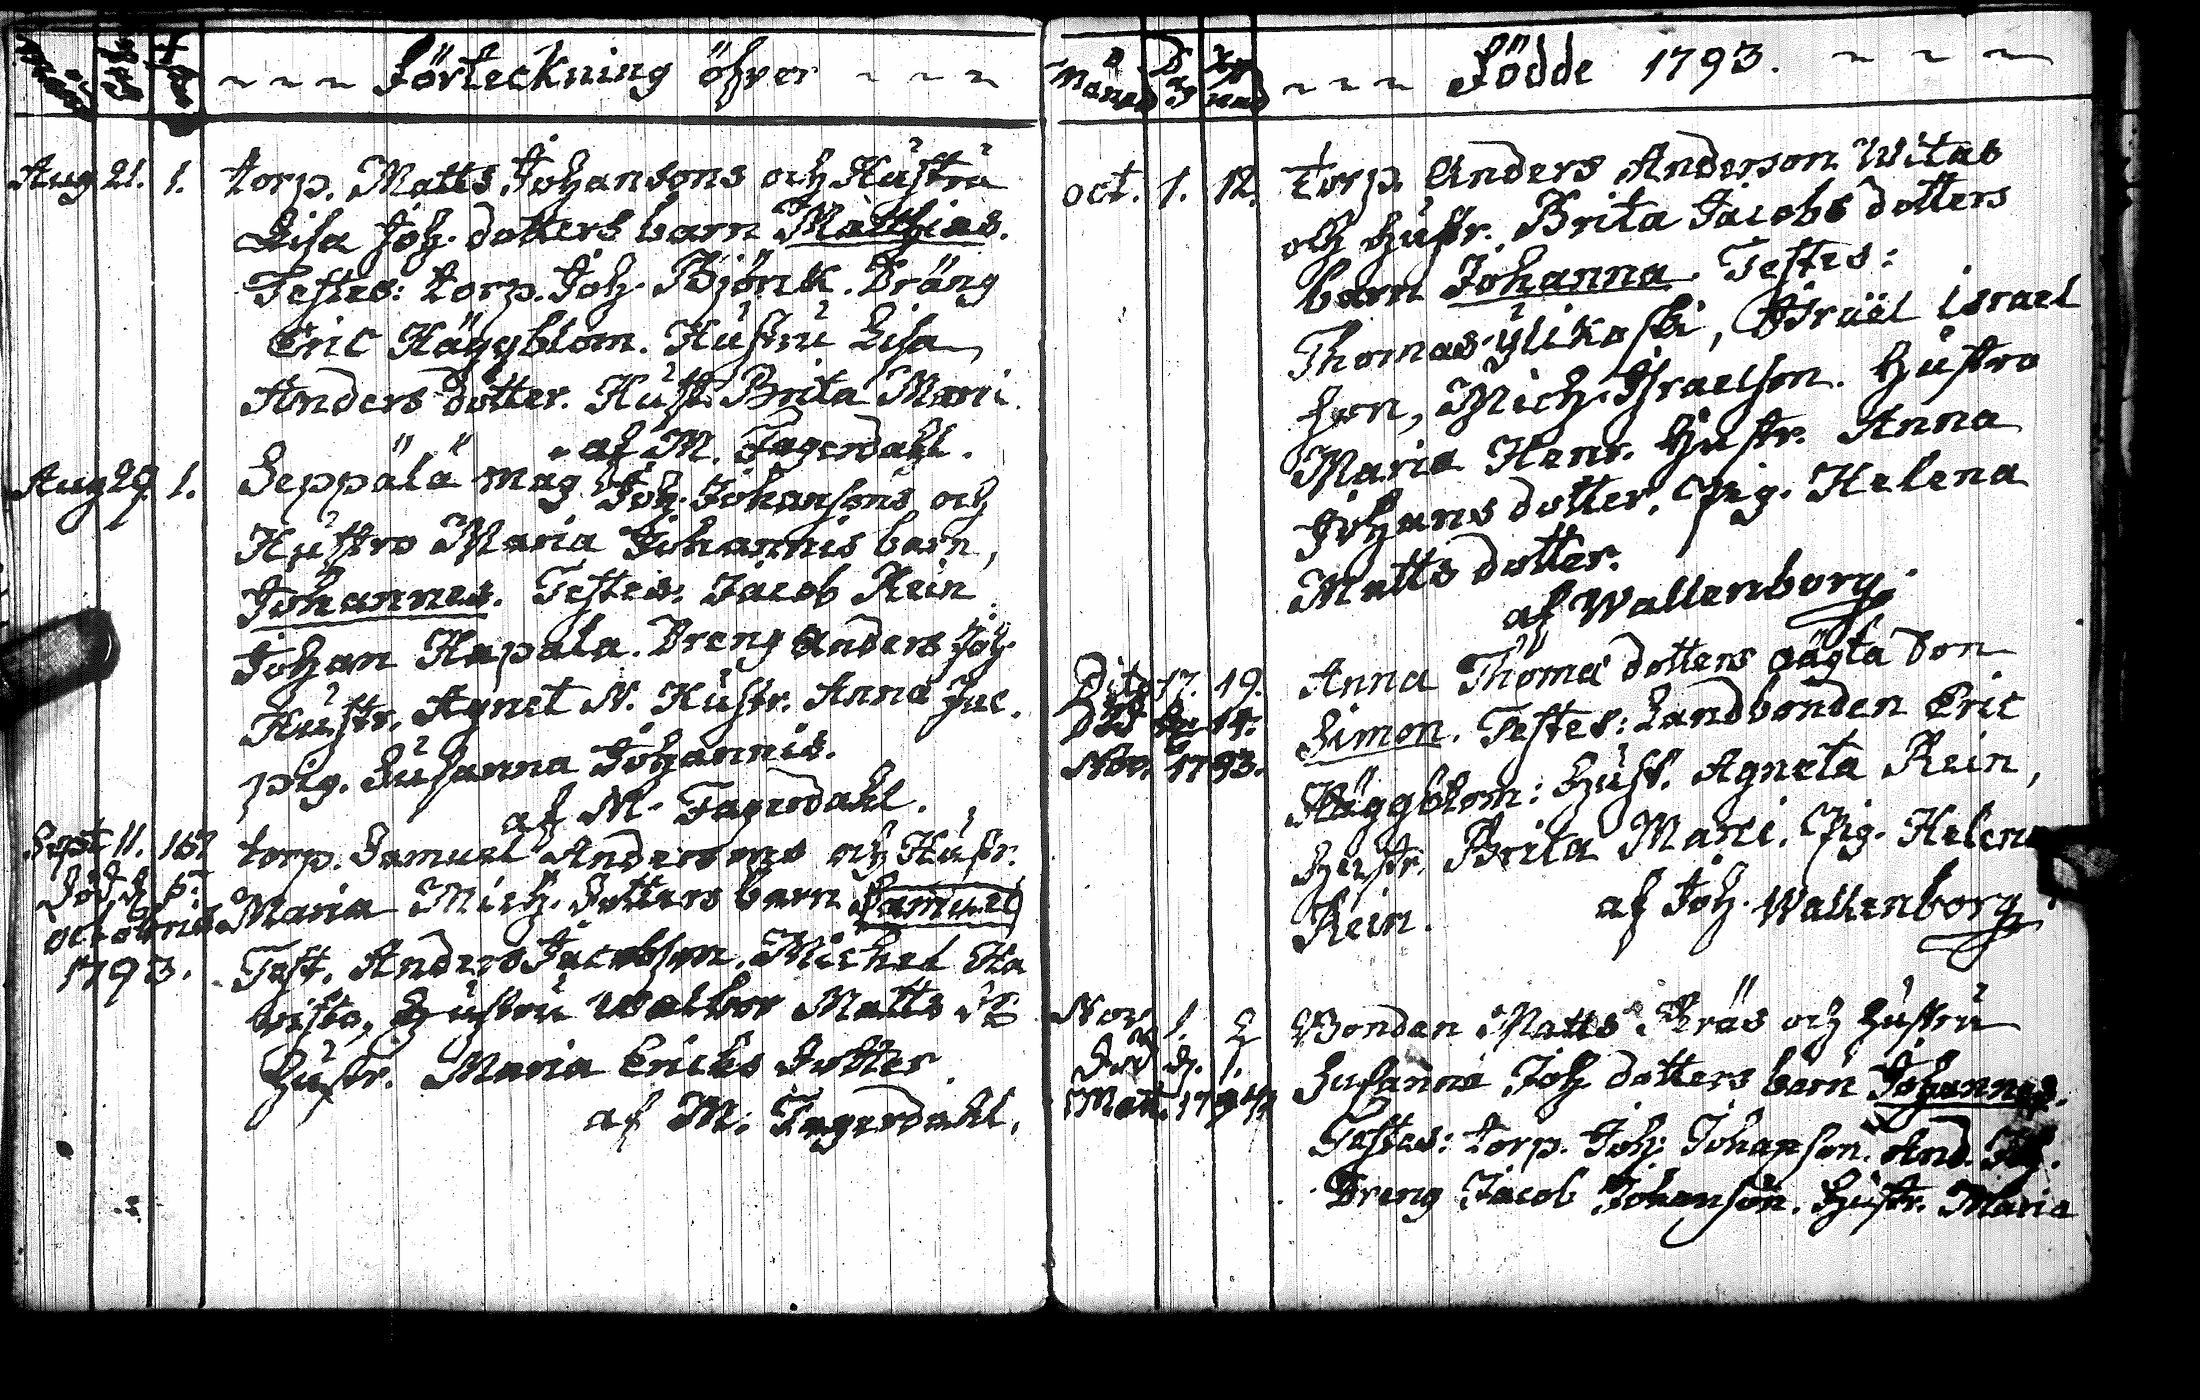 Månad Dag Xstnad ~ ~ ~ Förteckning öfver ~ ~ ~
Aug 21. 1. torp. Matts Johansons och Hustru
Lisa Joh. dotters barn Matthias.
Testes: torp. Joh. Björck. Dräng
Eric Häggblom. Hustru Lisa
Anders dotter. Hust. Brita Mari.
af M. Fagerdahl.
Aug 29. 1. Seppälä mag Joh. Johansons och
Hustro Maria Johannis barn,
Johannes. Testes: Jacob Rein
Johan Hapala. Dreng Anders Joh.
Hustr. Agnet N. Hustr. Anna Jac.
pig. Susanna Johannis.
af M. Fagerdahl.
Sept 11. torp. Samuel Andersons och Hustr.
Död d.
octobris Maria Mich. dotters barn Samuel
1793. Test. Anders Jacobson. Michel Ha
visto, Hustru Walbor Matts
Hustr. Maria Ericks dotter
af M. Fagerdahl.
Månad Dag Xstnad ~ ~ ~ Födde 1793. ~ ~ ~
oct. 1. 12. Torp. Anders Anderson Witas
och Hustr. Brita Jacobs dotters
barn Johanna. Testes:
Thomas Ylikoski, Israel Israel
son, Mich. Israelson. Hustro
Maria Henr. Hustr. Anna
Johans dotter. Pig. Helena
Matts dotter.
af Wallenborg.
Dito 17. 19. Anna Thomæ dotters oägta son
Död 14. Simon. Testes: Landbonden Eric
Nov. 1793. Häggblom: Hust. Agneta Rein,
Hustr. Brita Mari. Pig. Helena
Rein. af Joh. Wallenborg
Nov. 1. 2 Bonden Matts Kräs och Hustru
Död d. 1. Susanna Joh. dotters barn Johannes.
Matt. 1794. Testes: torp. Joh. Johanson. And.
Dreng Jacob Johanson. Hustr. Maria